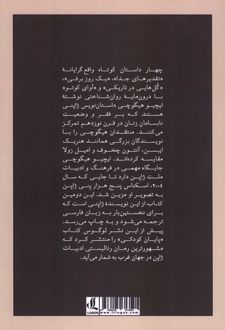 چهار داستان کوتاه واقع‌گرایانهٔ
«تقدیرهای جدا»، «یک روز برفی»،
«گل‌هایی در تاریکی» و «آوای کوتو»
با درون‌مایهٔ روان‌شناختی نوشتهٔ
ایچیو هیگوچی داستان‌نویس ژاپنی
هستند که بر فقر و وضعیت
نابسامان زنان در قرن نوزدهم تمرکز
می‌کنند. منتقدان هیگوچی را با
نویسندگان بزرگی همانند هنریک
ایبسن، آنتون چخوف و امیل زولا
مقایسه کرده‌اند. ایچیو هیگوچی
جایگاه مهمی در فرهنگ و ادبیات
ملت ژاپن دارد تا جایی که سال
۲۰۰۴، اسکناس پنج هزار ینی ژاپن
به تصویر او مزین شد. این دومین
کتاب از این نویسندهٔ ژاپنی است که
برای نخستین‌بار به زبان فارسی
ترجمه می‌شود و به چاپ می‌رسد.
پیش از این نشر لوگوس کتاب
«پایان کودکی» را منتشر کرد که
مشهورترین رمان رئالیستی ادبیات
ژاپن در جهان غرب به شمار می‌آید.
LOGOS